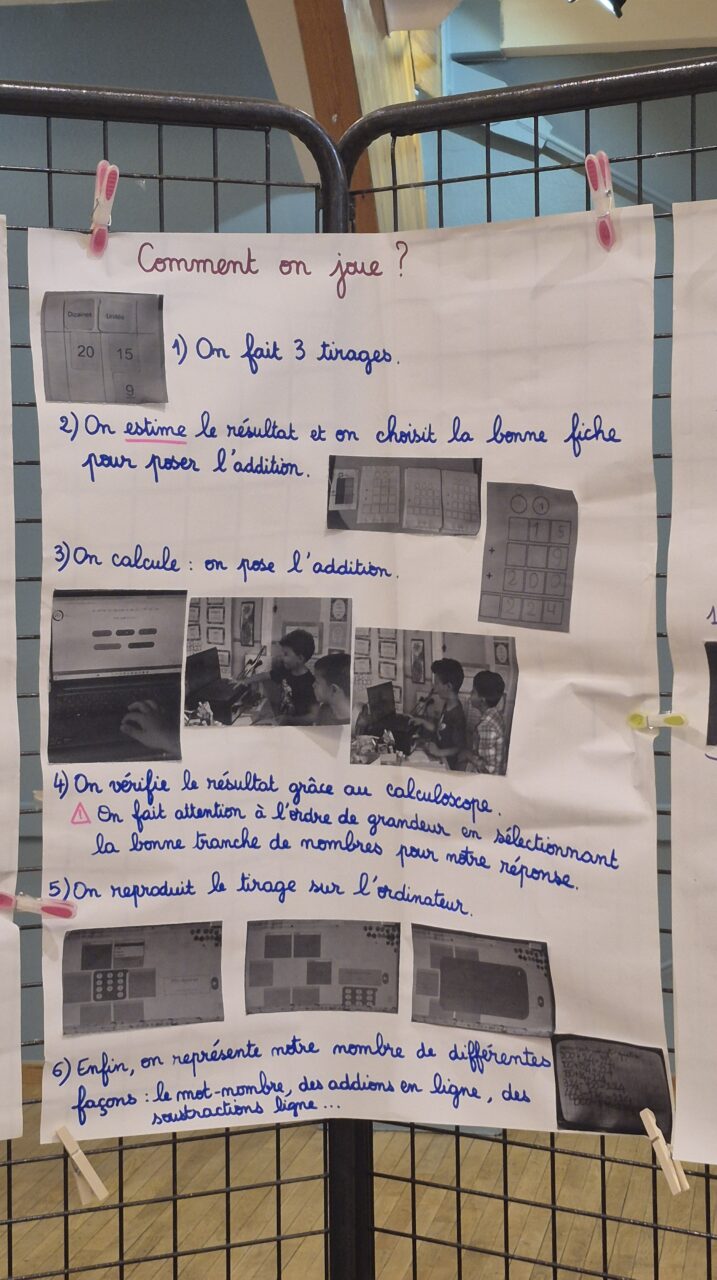 Comment on joue ?
Dizaines Unités
20 15
9
1) On fait 3 tirages.
2) On estime le résultat et on choisit la bonne fiche
pour poser l'addition.
1
1 5
+ 9
+ 2 0 0
2 2 4
3) On calcule : on pose l'addition.
4) On vérifie le résultat grâce au calculoscope.
⚠ On fait attention à l'ordre de grandeur en sélectionnant
la bonne tranche de nombres pour notre réponse.
5) On reproduit le tirage sur l'ordinateur.
6) Enfin, on représente notre nombre de différentes
façons : le mot-nombre, des addions en ligne, des
soustractions ligne ...